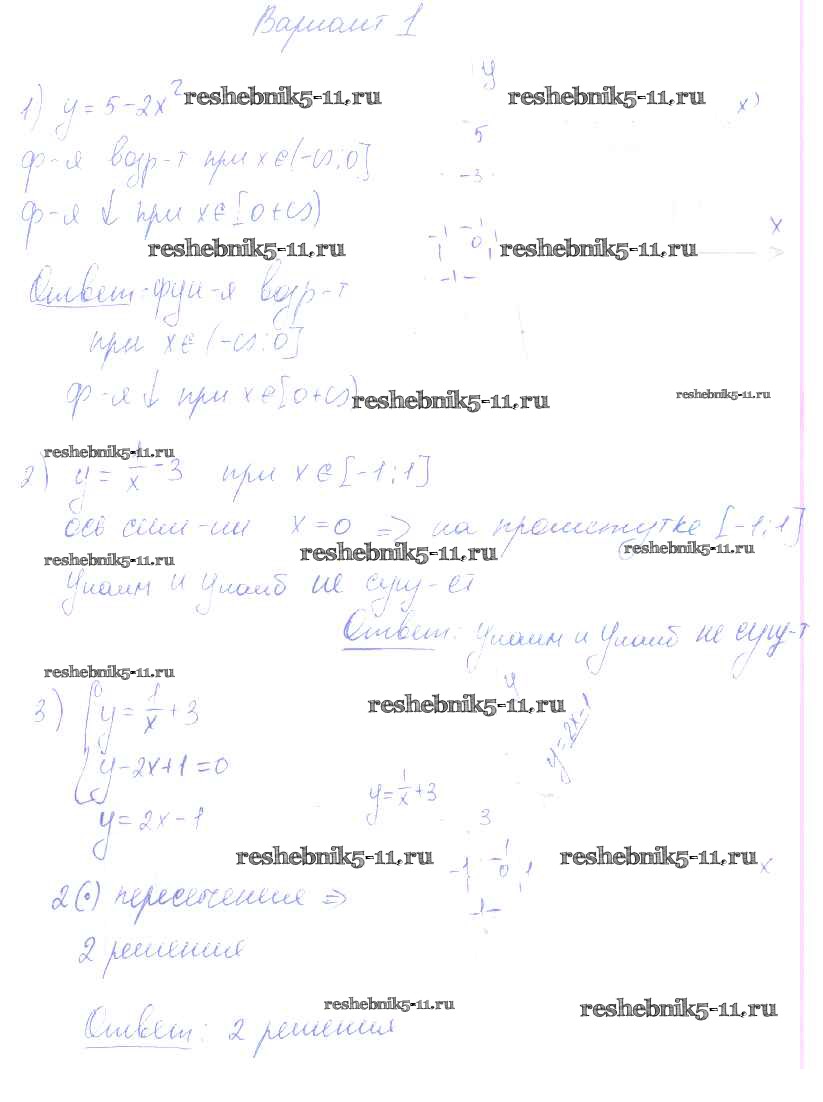 Вариант 1
1) y = 5 - 2x² reshebnik5-11.ru reshebnik5-11.ru
y
x
5
ф-я возр-т при x ∈ (-∞; 0]
-3
ф-я ↓ при x ∈ [0 +∞)
reshebnik5-11.ru -1 0 1 reshebnik5-11.ru x
-1
Ответ: фун-я возр-т
при x ∈ (-∞; 0]
ф-я ↓ при x ∈ [0 +∞) reshebnik5-11.ru reshebnik5-11.ru
reshebnik5-11.ru
2) y = 1/x - 3 при x ∈ [-1; 1]
ось сим-ии x = 0 => на промежутке [-1; 1]
reshebnik5-11.ru reshebnik5-11.ru reshebnik5-11.ru
Yнаим и Yнаиб не сущ-ет
Ответ: Yнаим и Yнаиб не сущ-т
reshebnik5-11.ru
3) { y = 1/x + 3 reshebnik5-11.ru
y
y = 2x - 1
y - 2x + 1 = 0
y = 1/x + 3
y = 2x - 1
3
reshebnik5-11.ru 1 reshebnik5-11.ru
-1 0 1 x
-1
2(•) пересечения =>
2 решения
reshebnik5-11.ru reshebnik5-11.ru
Ответ: 2 решения